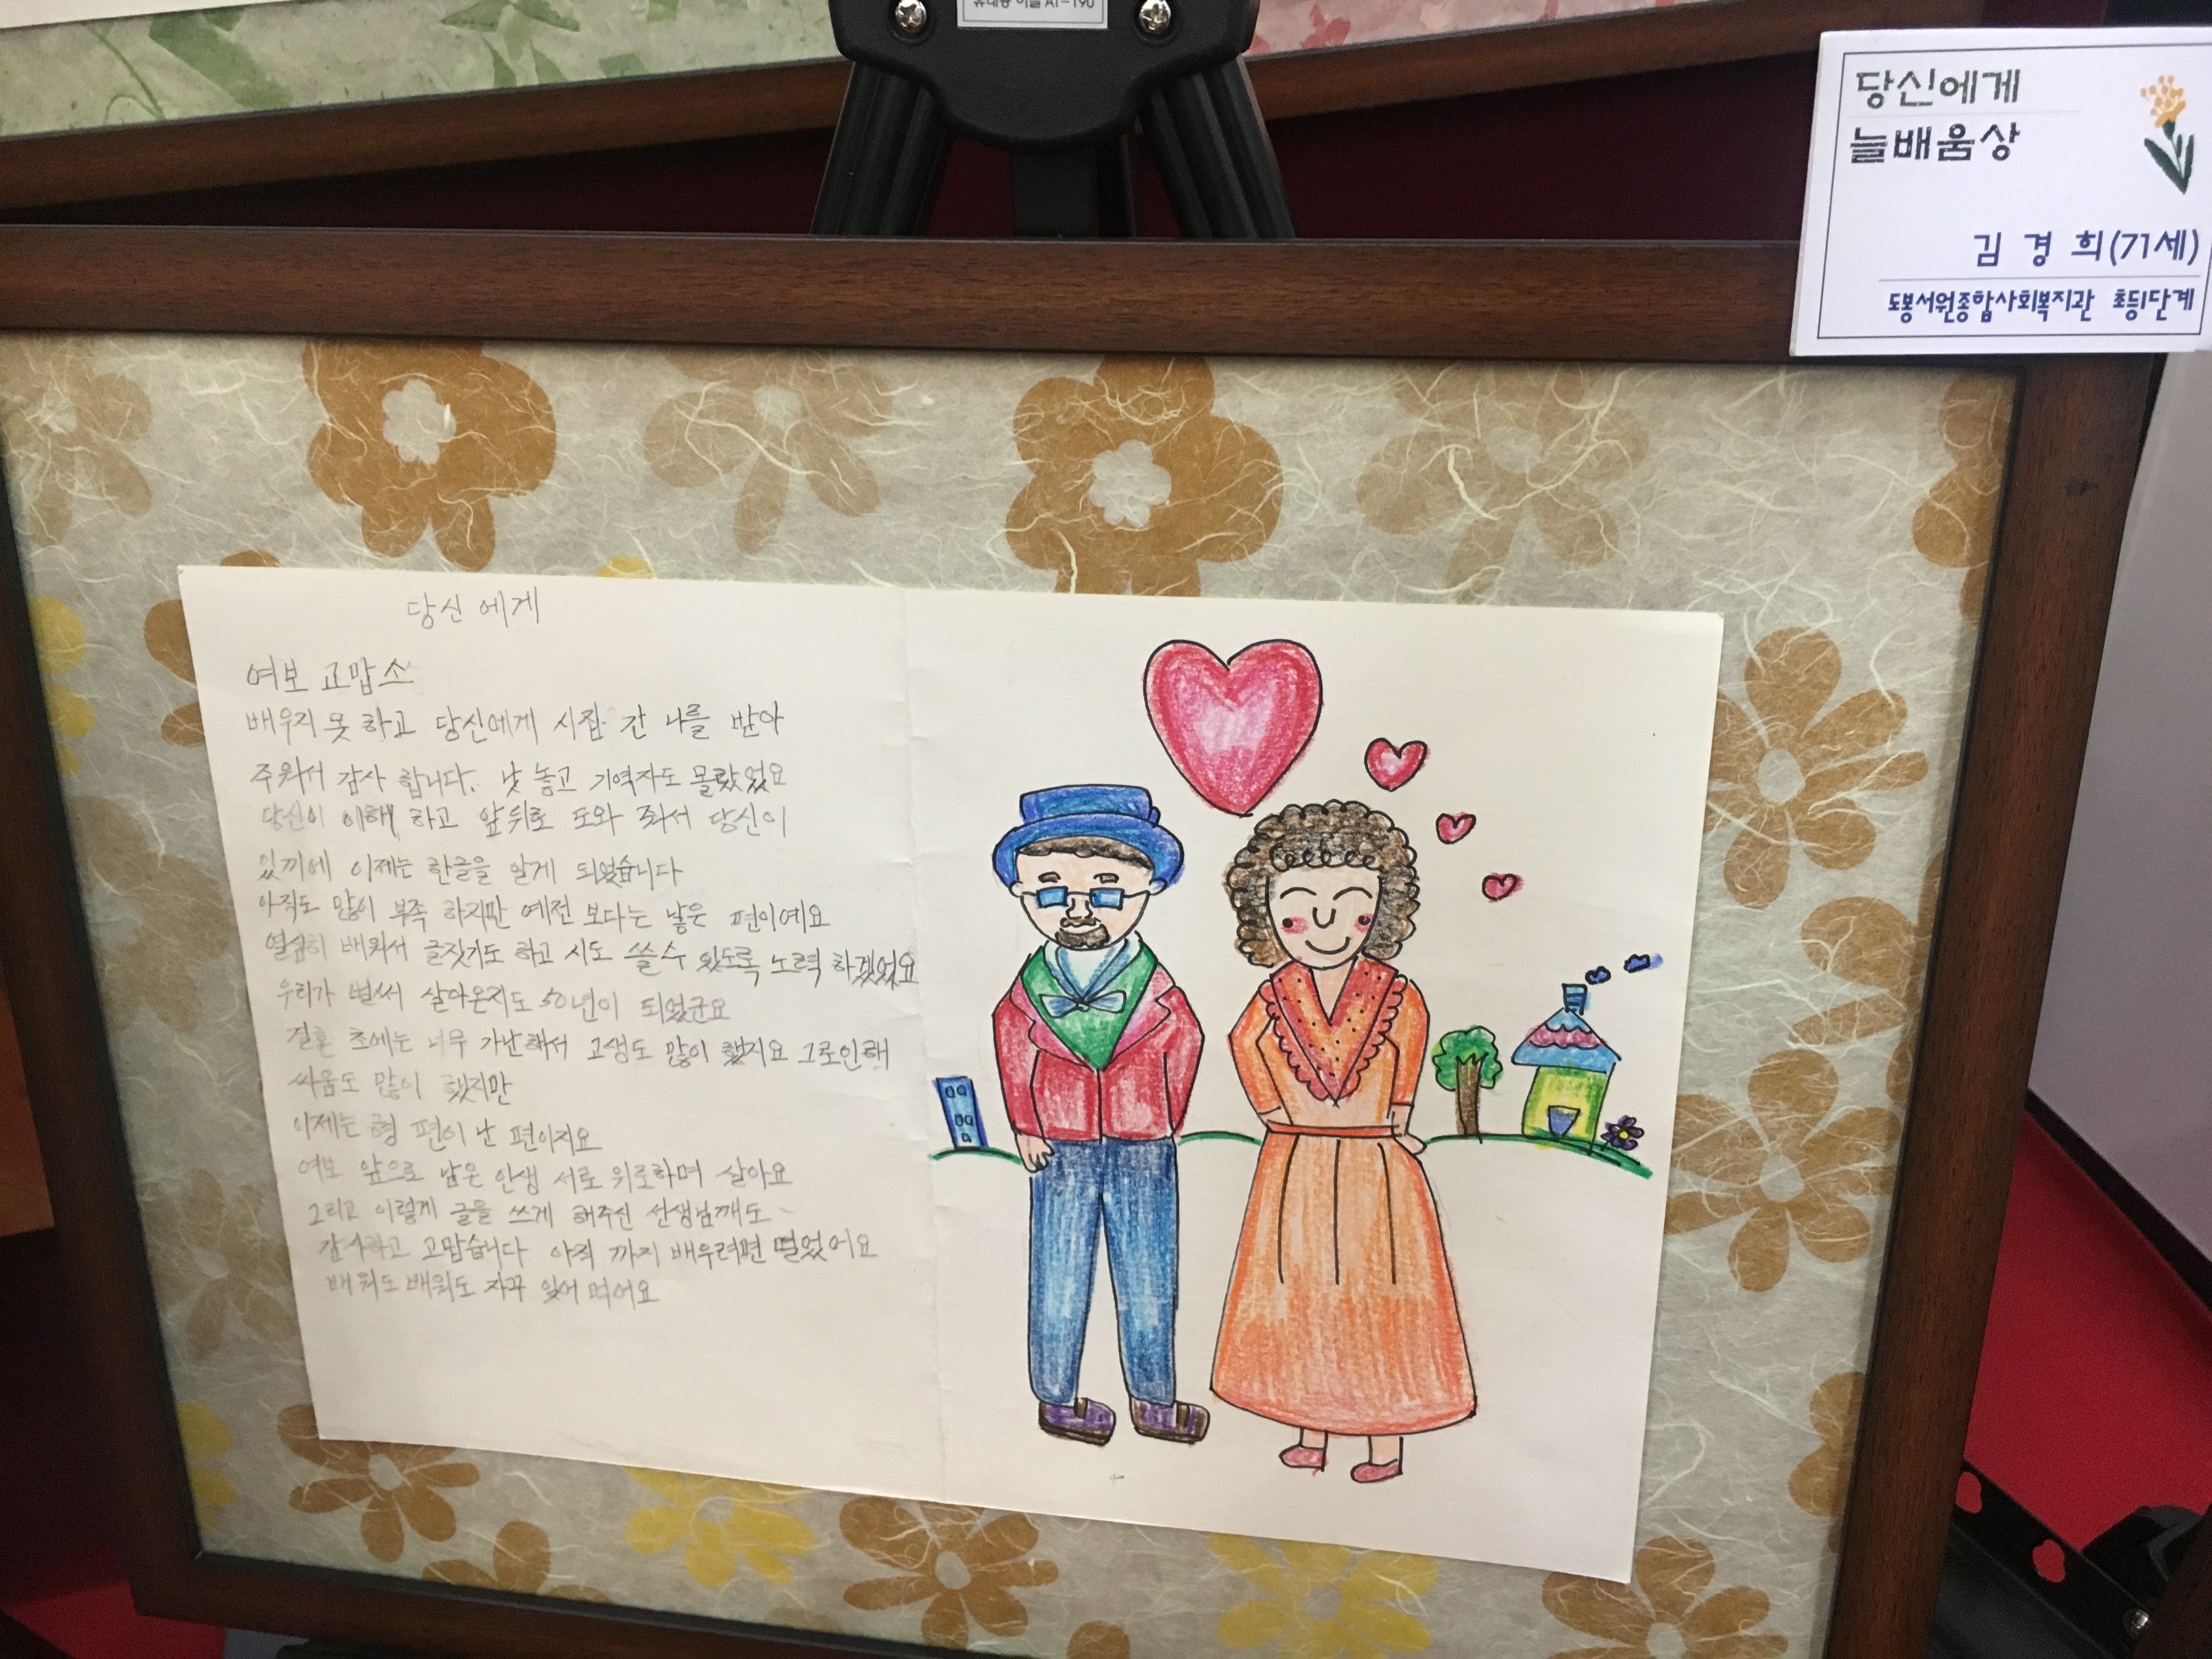 휴대용 이젤 AT-190
당신에게
늘배움상
김 경 희(71세)
도봉서원종합사회복지관 초등1단계
당신 에게
여보 고맙소
배우지 못 하고 당신에게 시집 간 나를 받아
주워서 감사 합니다. 낫 놓고 기역자도 몰랐었요
당신이 이해 하고 앞뒤로 도와 줘서 당신이
있끼에 이제는 한글을 알게 되었습니다
아직도 많이 부족 하지만 예전 보다는 낳은 편이예요
열심히 배워서 글짓기도 하고 시도 쓸 수 있도록 노력 하겠었요
우리가 벌써 살아온지도 50년이 되었군요
결혼 초에는 너무 가난해서 고생도 많이 했지요 그로인해
싸움도 많이 했지만
이제는 형 편이 난 편이지요
여보 앞으로 남은 인생 서로 위로하며 살아요
그리고 이렇게 글을 쓰게 해주신 선생님깨도
감사하고 고맙습니다 아직 까지 배우려면 멀었어요
배워도 배워도 자꾸 잊어 먹어요